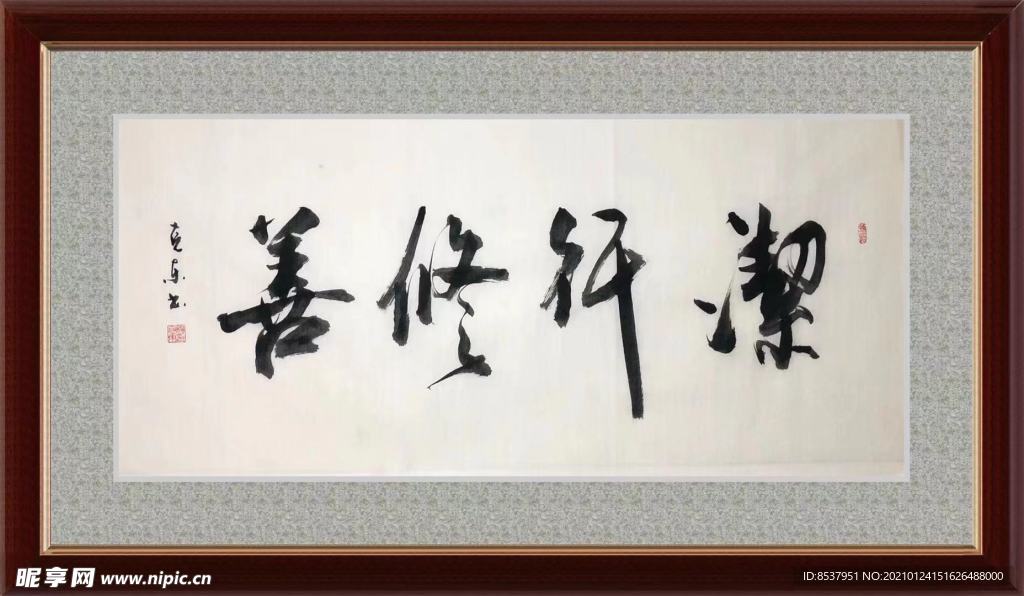 潔行修善
克東书
昵享网 www.nipic.cn
ID:8537951 NO:20210124151626488000